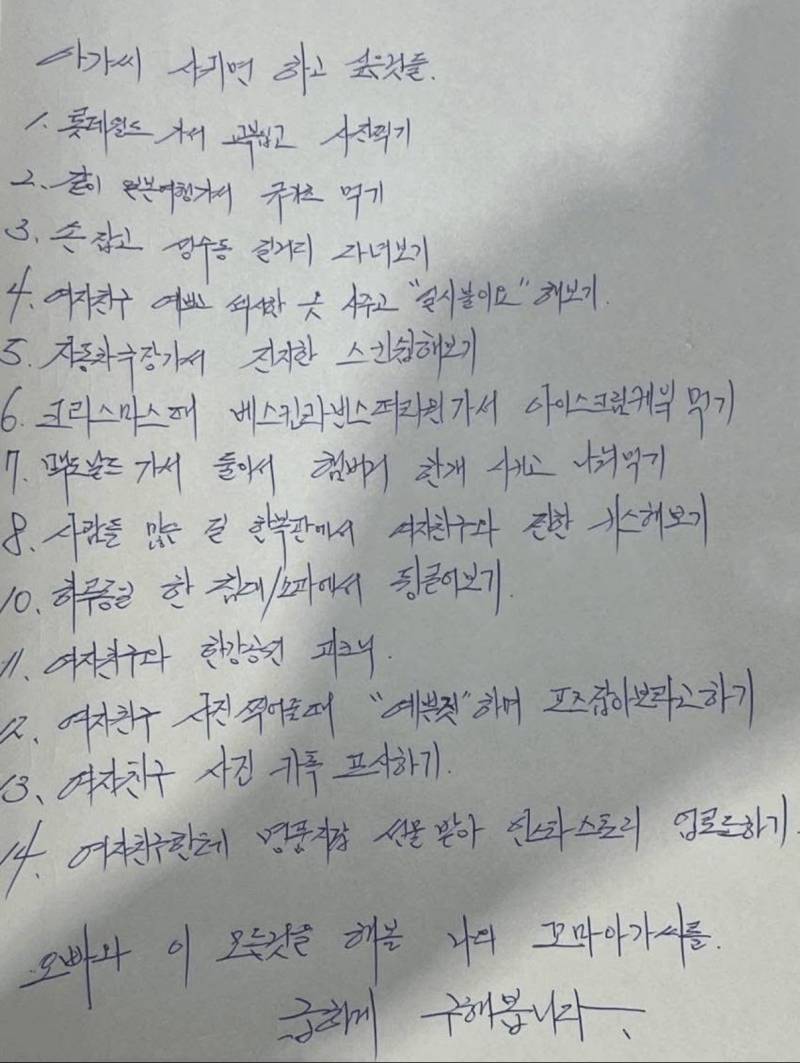 아가씨 사귀면 하고 싶은것들.
1. 롯데월드 가서 교복입고 사진찍기
2. 같이 일본여행가서 규카츠 먹기
3. 손 잡고 성수동 길거리 다녀보기
4. 여자친구 예쁘 섹시한 옷 사주고 "일시불이요" 해보기.
5. 자동차극장가서 진지한 스킨쉽해보기
6. 크리스마스때 베스킨라빈스 가서 아이스크림케익 먹기
7. 맥도날드 가서 둘이서 햄버거 한개 시키고 나눠먹기
8. 사람들 많은 길 한복판에서 여자친구와 진한 키스해보기
10. 하루종일 한 침대/소파에서 뒹굴어보기.
11. 여자친구와 한강공원 피크닉.
12. 여자친구 사진 찍어줄때 "예쁜짓"하며 포즈잡아보라고하기
13. 여자친구 사진 카톡 프사하기.
14. 여자친구한테 명품지갑 선물 받아 인스타스토리 업로드하기.
오빠와 이 모든것을 해볼 나의 꼬마아가씨를.
급하게 구해봅니다